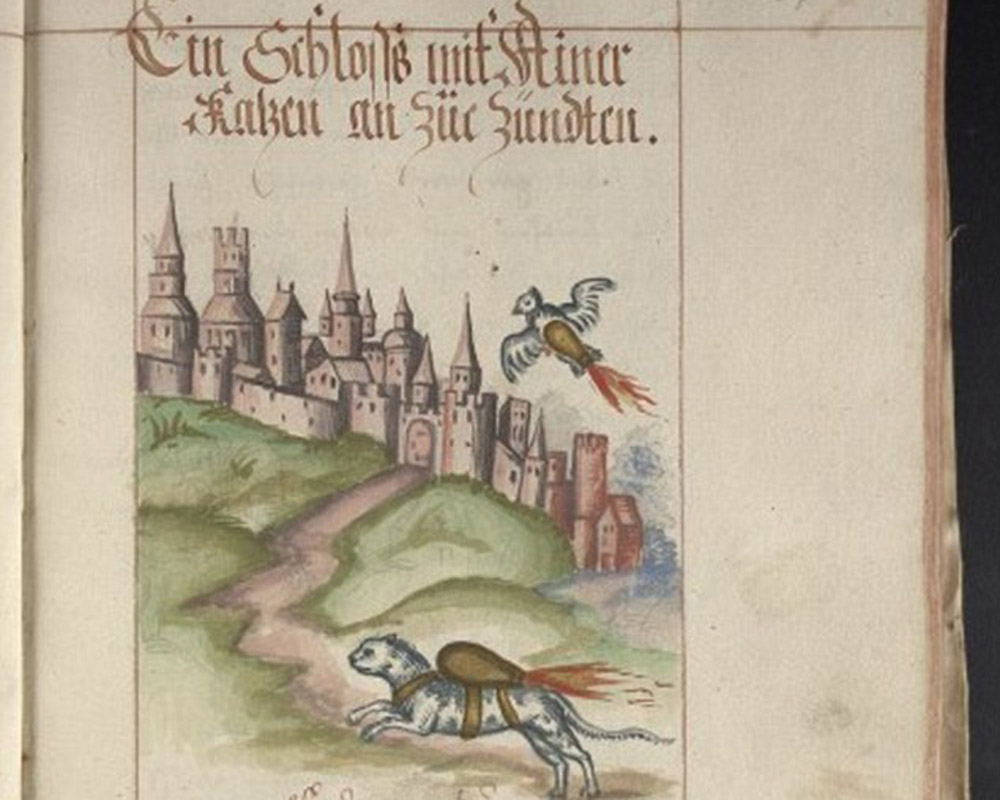 Ein Schloss mit Einer
Katzen an züe Zündten.